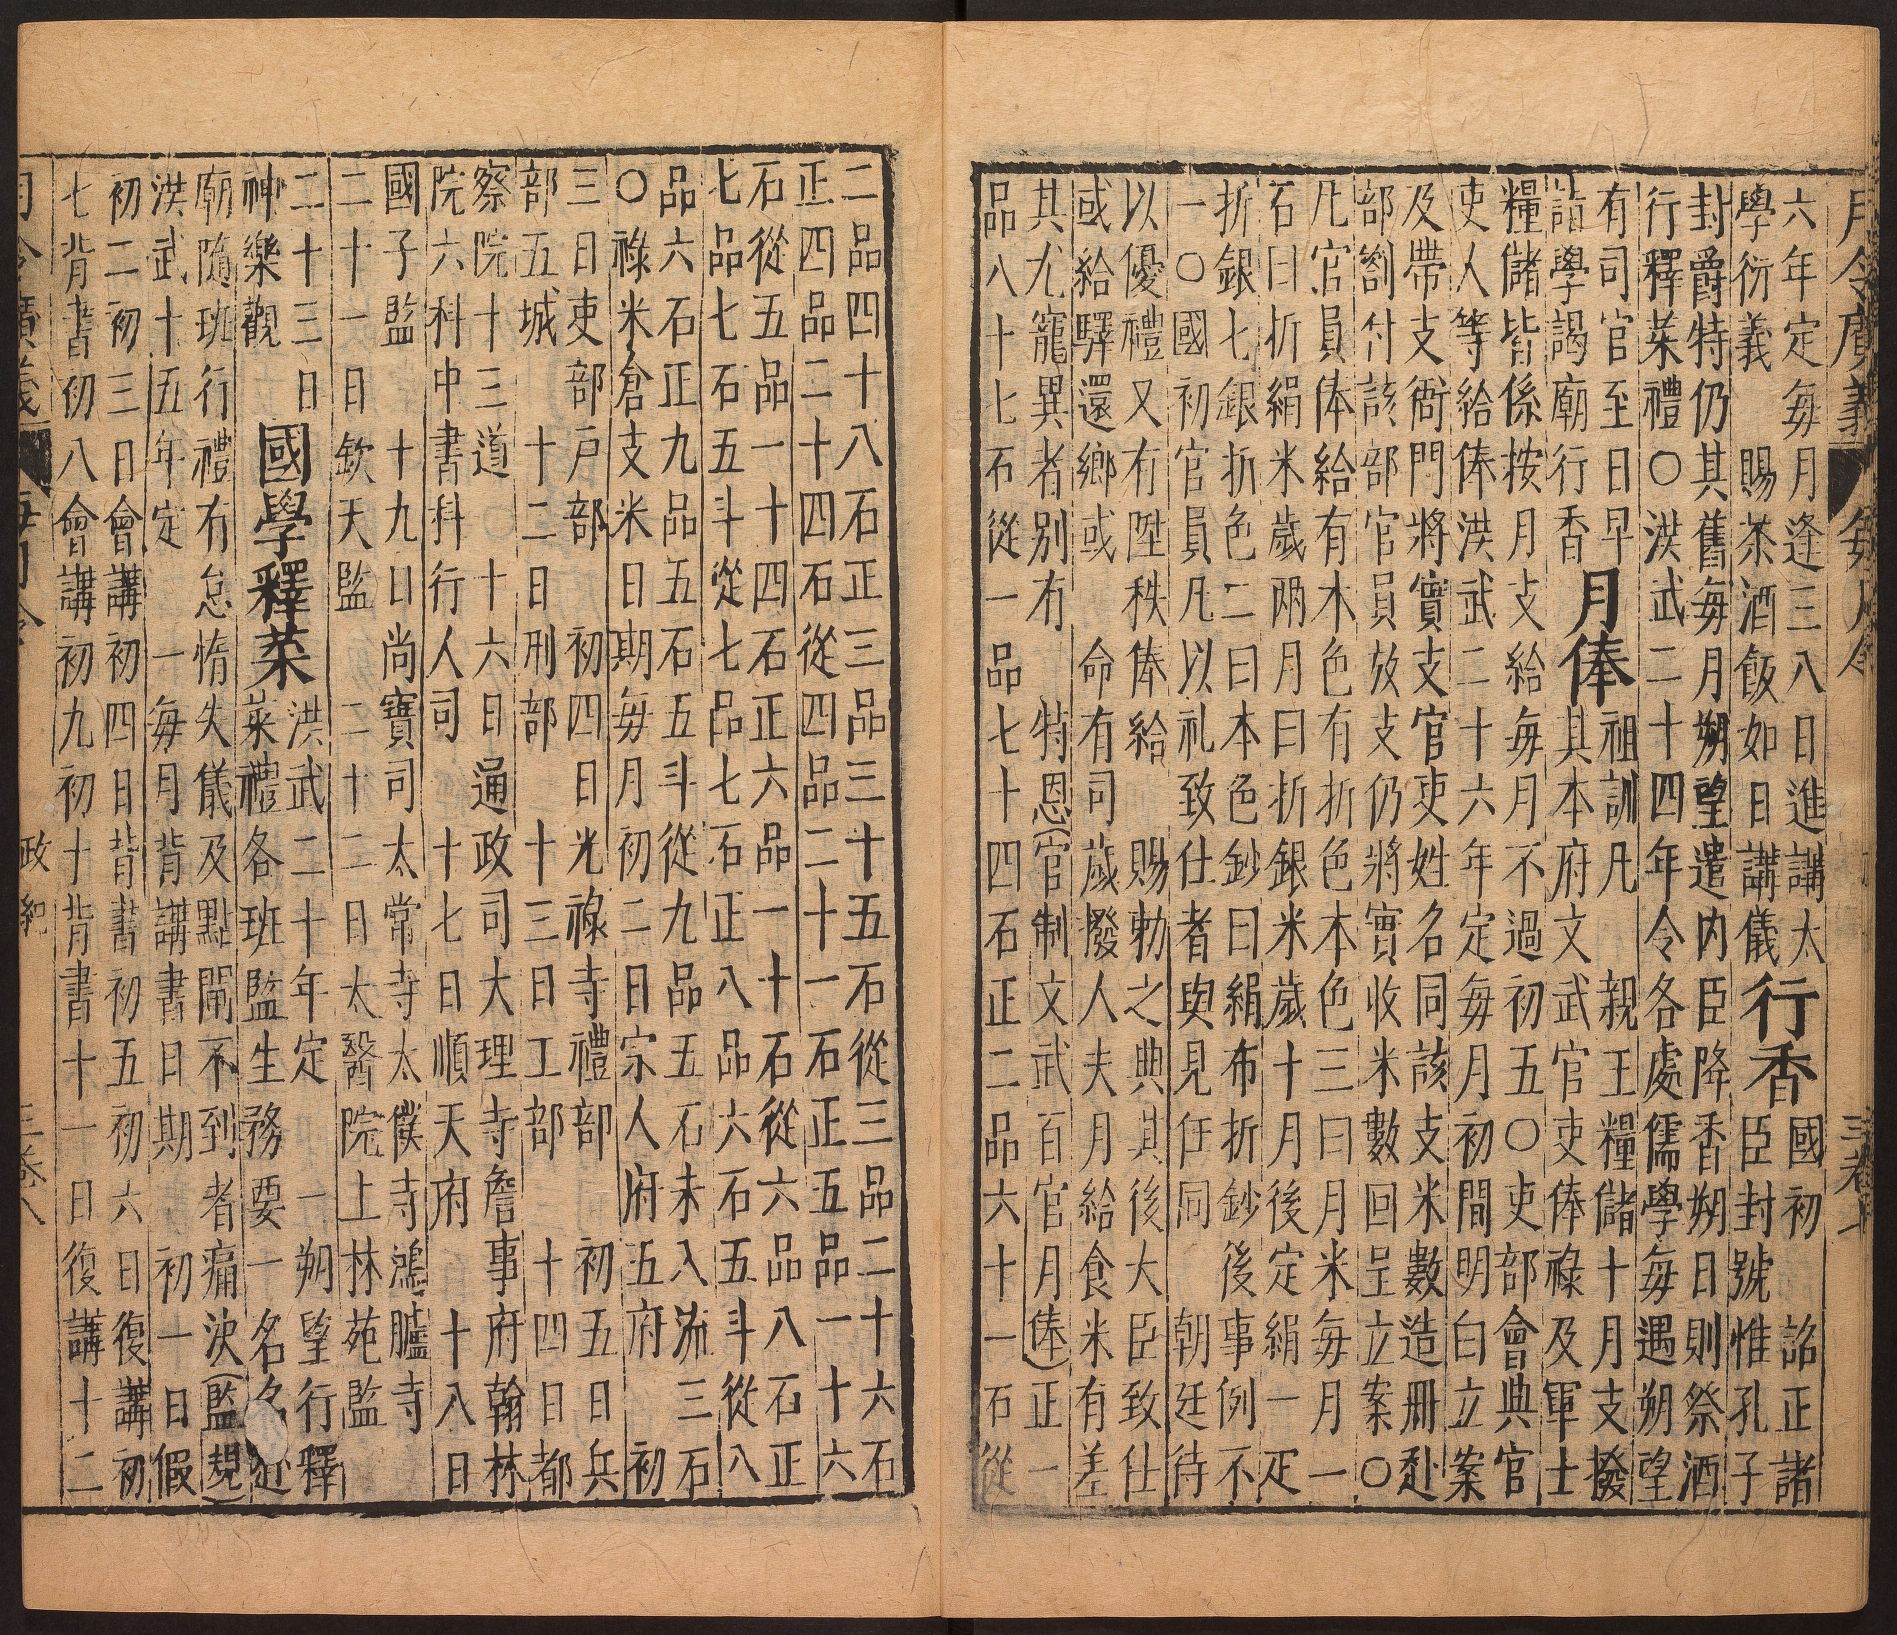 月令廣義 每月令
六年定每月逢三八日進講太
學衍義 賜茶酒飯如日講儀
行香
國初 詔正諸
臣封號惟孔子
封爵特仍其舊每月朔望遣内臣降香朔日則祭酒
行釋菜禮○洪武二十四年令各處儒學每遇朔望
有司官至日早
詣學謁廟行香
月俸
祖訓凡 親王糧儲十月支撥
其本府文武官吏俸祿及軍士
糧儲皆係按月支給每月不過初五○吏部會典官
吏人等給俸洪武二十六年定每月初間明白立案
及帶支衙門將實支官吏姓名同該支米數造冊赴
部劄付該部官員放支仍將實收米數回呈立案○
凡官員俸給有本色有折色本色三曰月米每月一
石曰折絹米歲兩月曰折銀米歲十月後定絹一疋
折銀七銀折色二曰本色鈔曰絹布折鈔後事例不
一○國初官員凡以礼致仕者與見任同 朝廷待
以優禮又有陞秩俸給 賜勅之典其後大臣致仕
或給驛還鄉或 命有司歲撥人夫月給食米有差
其尤寵異者别有 特恩(官制文武百官月俸)正一
品八十七石從一品七十四石正二品六十一石從
二品四十八石正三品三十五石從三品二十六石
正四品二十四石從四品二十一石正五品一十六
石從五品一十四石正六品一十石從六品八石正
七品七石五斗從七品七石正八品六石五斗從八
品六石正九品五石五斗從九品五石未入流三石
○祿米倉支米日期每月初二日宗人府五府 初
三日吏部戶部 初四日光祿寺禮部 初五日兵
部五城 十二日刑部 十三日工部 十四日都
察院十三道○十六日通政司大理寺詹事府翰林
院六科中書科行人司 十七日順天府 十八日
國子監 十九日尚寶司太常寺太僕寺鴻臚寺
二十一日欽天監 二十二日太醫院上林苑監
二十三日
神樂觀
國學釋菜
洪武二十年定 朔望行釋
菜禮各班監生務要一名名赴
廟隨班行禮有怠惰失儀及點閘不到者痛決(監規)
洪武十五年定 一每月背講書日期 初一日假
初二初三日會講初四日背書初五初六日復講初
七背書初八會講初九初十背書十一日復講十二
月令廣義 每月令 政紀 三卷八